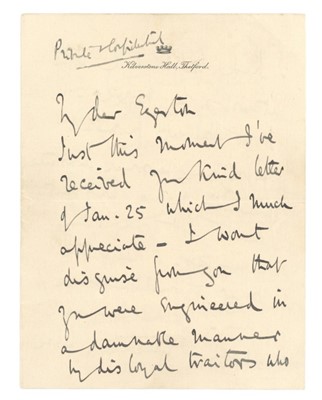 Private & Confidential
Kilverstone Hall, Thetford.
My dear Egerton
Just this moment I've
received yr kind letter
of Jan. 25 which I much
appreciate – I won't
disguise from you that
you were engineered in
a damnable manner
by disloyal traitors who